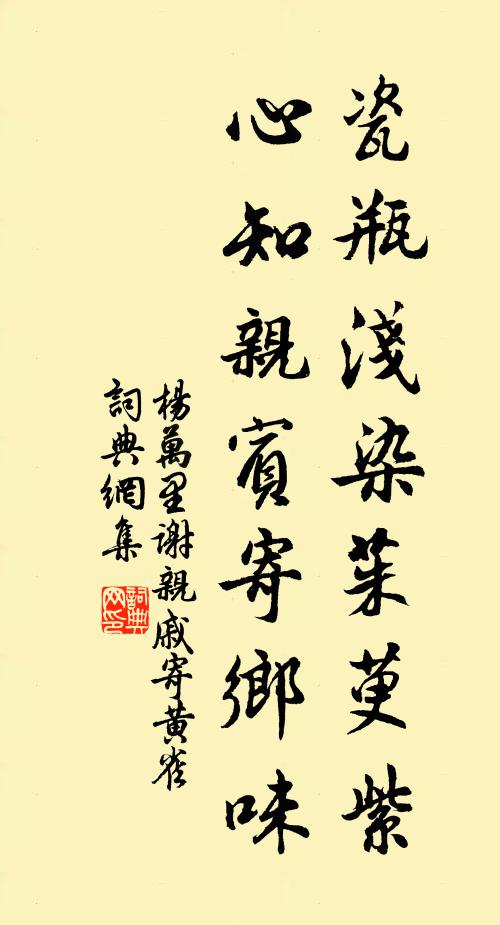 瓷瓶淺染茱萸紫
心知親賓寄鄉味
楊萬里謝親戚寄黃雀
詞典網集
詞典網印